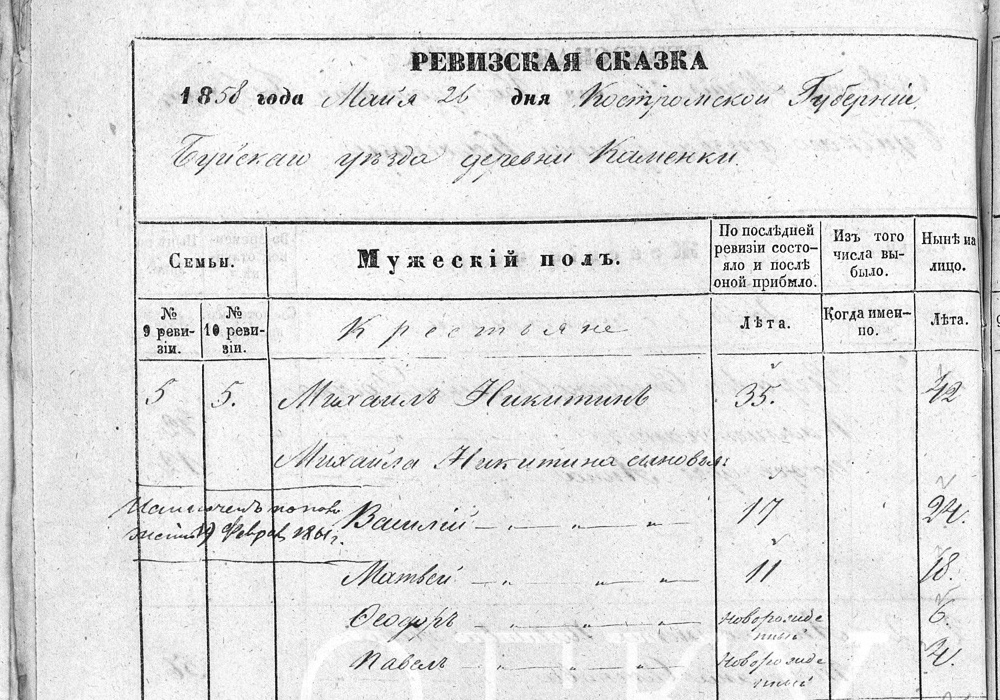 РЕВИЗСКАЯ СКАЗКА
1858 года Майя 26 дня Костромской Губерніи
Буйскаго уѣзда деревни Каменки.
Семьи.
Мужескій полъ.
По послѣдней ревизіи состояло и послѣ оной прибыло.
Изъ того числа выбыло.
Нынѣ на лицо.
№ 9 ревизіи.
№ 10 ревизіи.
Крестьяне
Лѣта.
Когда именно.
Лѣта.
5 5. Михаилъ Никитинъ 35. 42
Михайла Никитина сыновья:
19 Феврал 1861 г.
Василій 17 24.
Матвей 11 18.
Ѳеодоръ Новорожденный 6.
Павелъ Новорожденный 4.